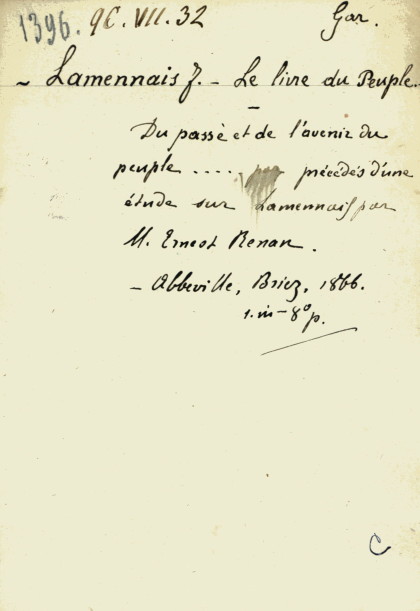 1396. 9C. VII. 32 Gar.
~ Lamennais F. – Le livre du Peuple.
–
Du passé et de l'avenir du
peuple .... précédés d'une
étude sur Lamennais par
M. Ernest Renan.
– Abbeville, Briez, 1866.
1. in-8º p.
C